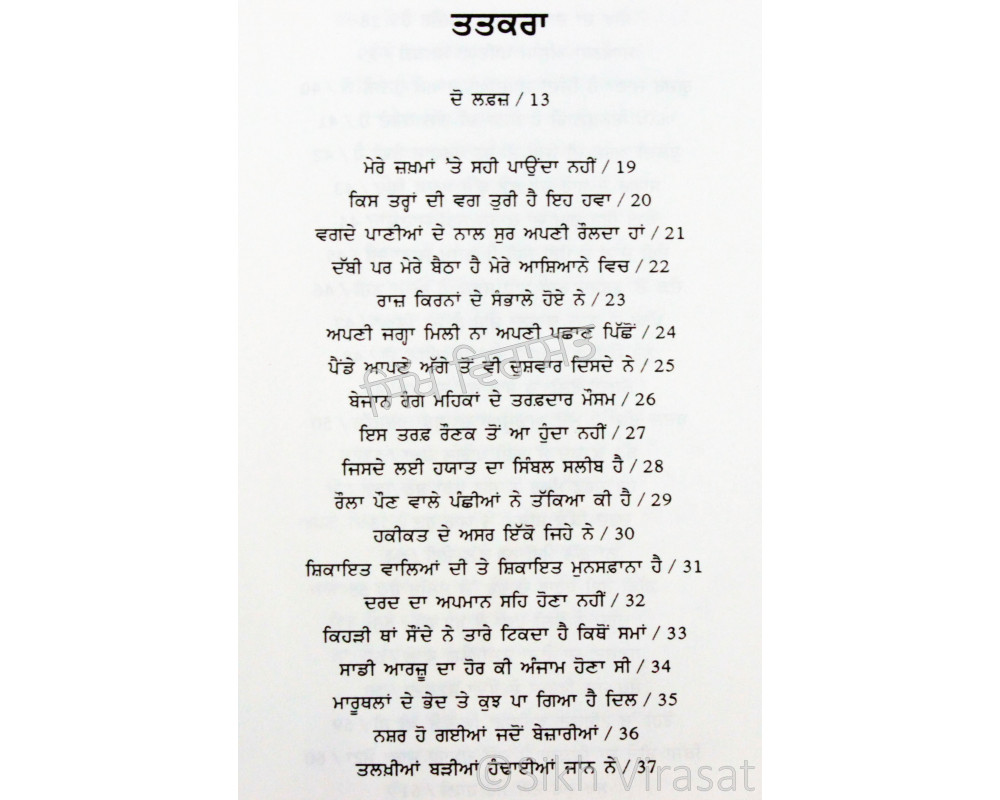 ਤਤਕਰਾ
ਦੋ ਲਫ਼ਜ਼ / 13
ਮੇਰੇ ਜ਼ਖ਼ਮਾਂ 'ਤੇ ਸਹੀ ਪਾਉਂਦਾ ਨਹੀਂ / 19
ਕਿਸ ਤਰ੍ਹਾਂ ਦੀ ਵਗ ਤੁਰੀ ਹੈ ਇਹ ਹਵਾ / 20
ਵਗਦੇ ਪਾਣੀਆਂ ਦੇ ਨਾਲ ਸੁਰ ਅਪਣੀ ਰੌਲਦਾ ਹਾਂ / 21
ਦੱਬੀ ਪਰ ਮੇਰੇ ਬੈਠਾ ਹੈ ਮੇਰੇ ਆਸ਼ਿਆਨੇ ਵਿਚ / 22
ਰਾਜ਼ ਕਿਰਨਾਂ ਦੇ ਸੰਭਾਲੇ ਹੋਏ ਨੇ / 23
ਅਪਣੀ ਜਗ੍ਹਾ ਮਿਲੀ ਨਾ ਅਪਣੀ ਪਛਾਣ ਪਿੱਛੋਂ / 24
ਪੈਂਡੇ ਆਪਣੇ ਅੱਗੇ ਤੋਂ ਵੀ ਦੁਸ਼ਵਾਰ ਦਿਸਦੇ ਨੇ / 25
ਬੇਜਾਨ ਰੰਗ ਮਹਿਕਾਂ ਦੇ ਤਰਫ਼ਦਾਰ ਮੌਸਮ / 26
ਇਸ ਤਰਫ਼ ਰੌਣਕ ਤੋਂ ਆ ਹੁੰਦਾ ਨਹੀਂ / 27
ਜਿਸਦੇ ਲਈ ਹਯਾਤ ਦਾ ਸਿੰਬਲ ਸਲੀਬ ਹੈ / 28
ਰੌਲਾ ਪੌਣ ਵਾਲੇ ਪੰਛੀਆਂ ਨੇ ਤੱਕਿਆ ਕੀ ਹੈ / 29
ਹਕੀਕਤ ਦੇ ਅਸਰ ਇੱਕੋ ਜਿਹੇ ਨੇ / 30
ਸ਼ਿਕਾਇਤ ਵਾਲਿਆਂ ਦੀ ਤੇ ਸ਼ਿਕਾਇਤ ਮੁਨਸਫ਼ਾਨਾ ਹੈ / 31
ਦਰਦ ਦਾ ਅਪਮਾਨ ਸਹਿ ਹੋਣਾ ਨਹੀਂ / 32
ਕਿਹੜੀ ਥਾਂ ਸੌਂਦੇ ਨੇ ਤਾਰੇ ਟਿਕਦਾ ਹੈ ਕਿਥੋਂ ਸਮਾਂ / 33
ਸਾਡੀ ਆਰਜ਼ੂ ਦਾ ਹੋਰ ਕੀ ਅੰਜਾਮ ਹੋਣਾ ਸੀ / 34
ਮਾਰੂਥਲਾਂ ਦੇ ਭੇਦ ਤੇ ਕੁਝ ਪਾ ਗਿਆ ਹੈ ਦਿਲ / 35
ਨਸ਼ਰ ਹੋ ਗਈਆਂ ਜਦੋਂ ਬੇਜ਼ਾਰੀਆਂ / 36
ਤਲਖ਼ੀਆਂ ਬੜੀਆਂ ਹੰਢਾਈਆਂ ਜਾਨ ਨੇ / 37
ਸਿੱਖ ਵਿਰਾਸਤ
© Sikh Virasat